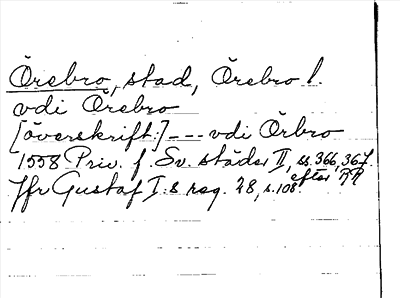 Örebro, stad, Örebro l.
vdi Örebro
[överskrift:] --- vdi Örbro
1558 Priv. f. Sv. städer II, ss. 366, 367.
efter RR
Jfr Gustaf I:s reg. 28, s. 108